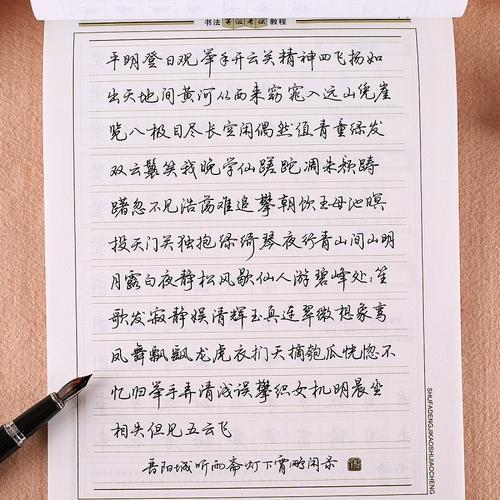 书法等级考试教程
平明登日观举手开云关精神四飞扬如
出天地间黄河从西来窈窕入远山凭崖
览八极目尽长空闲偶然值青童绿发
双云鬟笑我晚学仙蹉跎凋朱颜踌
躇忽不见浩荡难追攀朝饮王母池暝
投天门关独抱绿绮琴夜行青山间山明
月露白夜静松风歇仙人游碧峰处々笙
歌发寂静娱清辉玉真连翠微想象鸾
凤舞飘飖龙虎衣扪天摘匏瓜恍惚不
忆归举手弄清浅误攀织女机明晨坐
相失但见五云飞
晋阳城听雨斋灯下霄鹏闲录
SHUFADENGJIKAOSHIJIAOCHENG